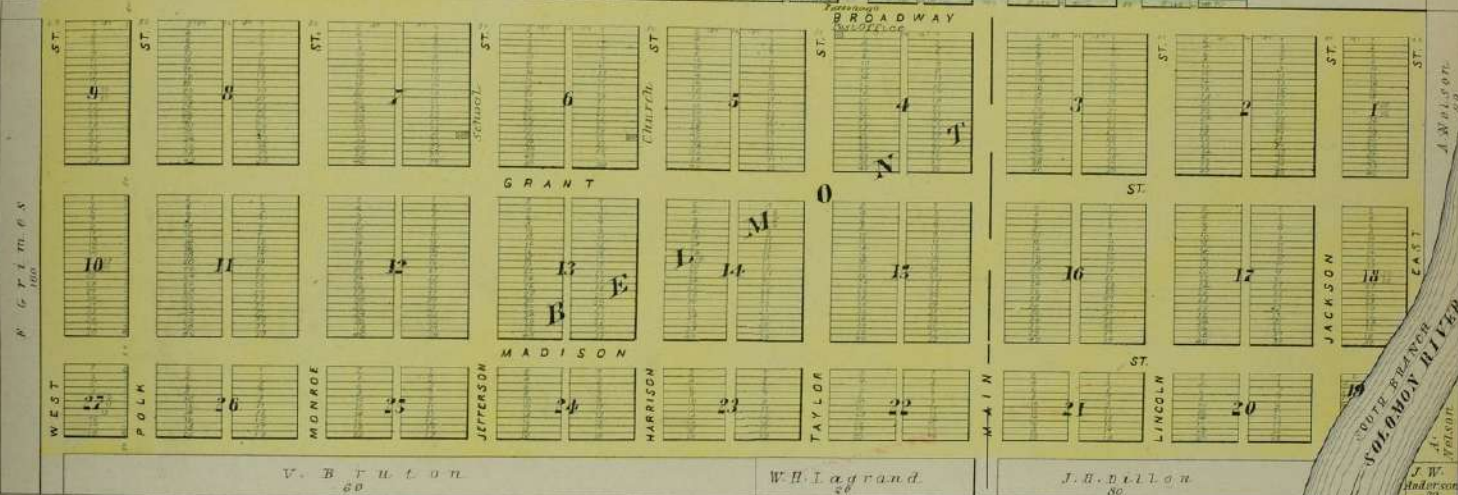 BROADWAY
ST.
ST.
ST.
ST.
ST.
ST.
ST.
ST.
ST.
9
8
7
6
5
4
3
2
1
School
Church
A. Nelson
GRANT
ST.
BELMONT
F Grimes
160
10
11
12
13
14
15
16
17
18
MADISON
ST.
WEST
POLK
MONROE
JEFFERSON
HARRISON
TAYLOR
MAIN
LINCOLN
JACKSON
EAST
27
26
25
24
23
22
21
20
19
SOUTH BRANCH
SOLOMON RIVER
A. Nelson
V. Bruton
60
W.H. Lagrand
J.H. Dillon
80
J. W.
Anderson